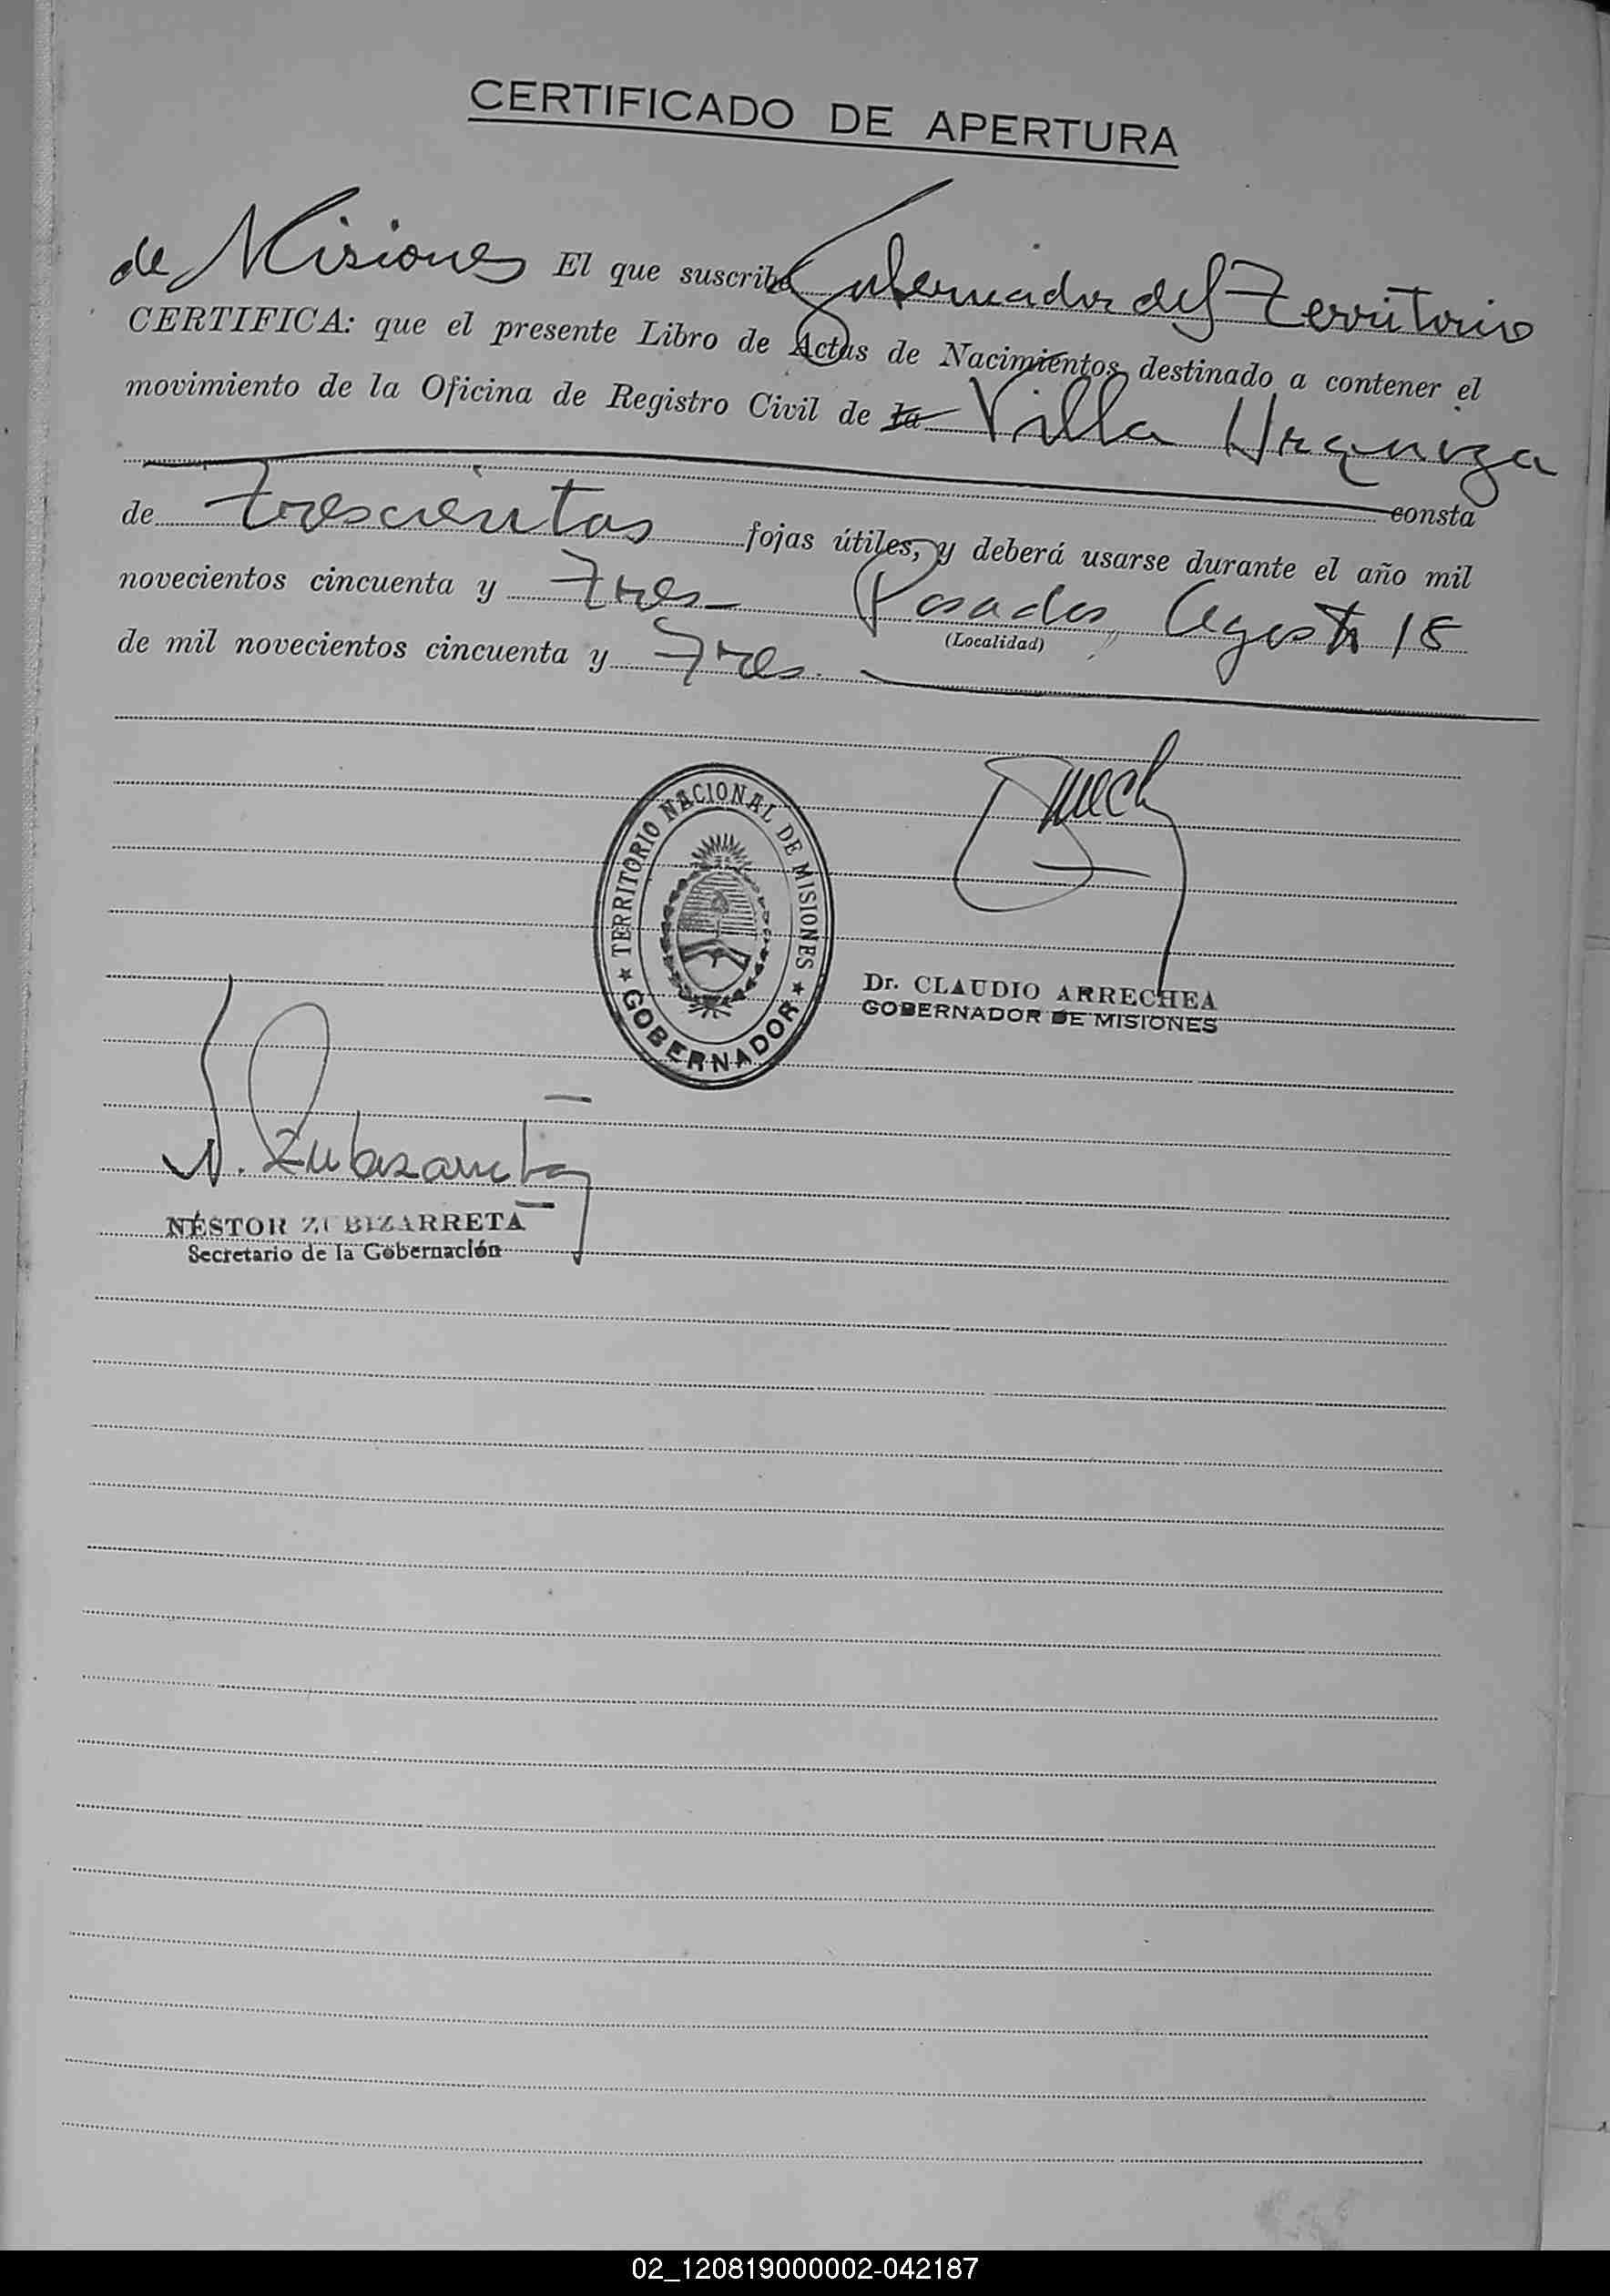 CERTIFICADO DE APERTURA
El que suscribe Gobernador del Territorio
de Misiones
CERTIFICA: que el presente Libro de Actas de Nacimientos destinado a contener el
movimiento de la Oficina de Registro Civil de la Villa Urquiza
consta
de trescientas fojas útiles, y deberá usarse durante el año mil
novecientos cincuenta y tres Posadas, Agosto 18
(Localidad)
de mil novecientos cincuenta y tres.
TERRITORIO NACIONAL DE MISIONES
GOBERNADOR
Dr. CLAUDIO ARRECHEA
GOBERNADOR DE MISIONES
N. Zubizarreta
NÉSTOR ZUBIZARRETA
Secretario de la Gobernación
02_120819000002-042187